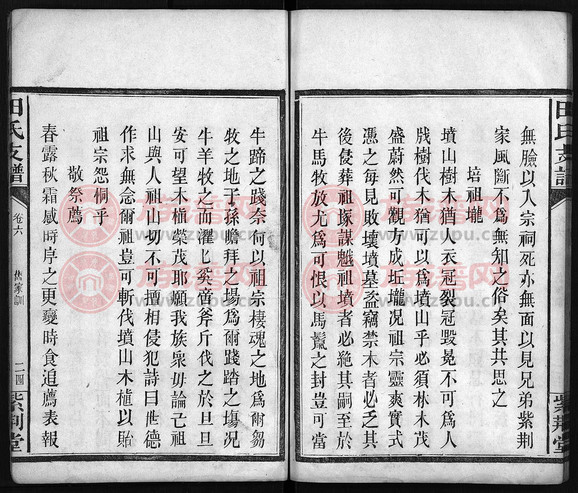 田氏支譜
紫荆堂
無臉以入宗祠死亦無面以見兄弟紫荆
家風斷不容有此無知之俗矣其共思之
培祖壠
墳山樹木猶人衣冠裂冠毀冕不可爲人
戕樹伐木猶可以爲墳山乎必須林木茂
盛蔚然可觀方成坵壠况祖宗靈爽實式
憑之每見敗壞墳墓盗竊禁木者必乏其
後侵葬祖塚謀魆祖墳者必絶其嗣至於
牛馬牧放尤爲可恨以馬鬣之封豈可當
牛蹄之踐奈何以祖宗棲魂之地爲爾芻
牧之地子孫瞻拜之塲爲爾踐踏之塲况
牛羊牧之而濯匕矣啻斧斤伐之於旦旦
安可望木植榮茂耶願我族衆毋論己祖
山與人祖山切不可擅相侵犯詩曰世德
作求無念爾祖豈可斬伐墳山木植以貽
祖宗怨恫乎
敬祭薦
春露秋霜感時序之更變時食追薦表報
田氏支譜
卷六
家訓
二四
紫荆堂
族譜网
www.zupu.cn